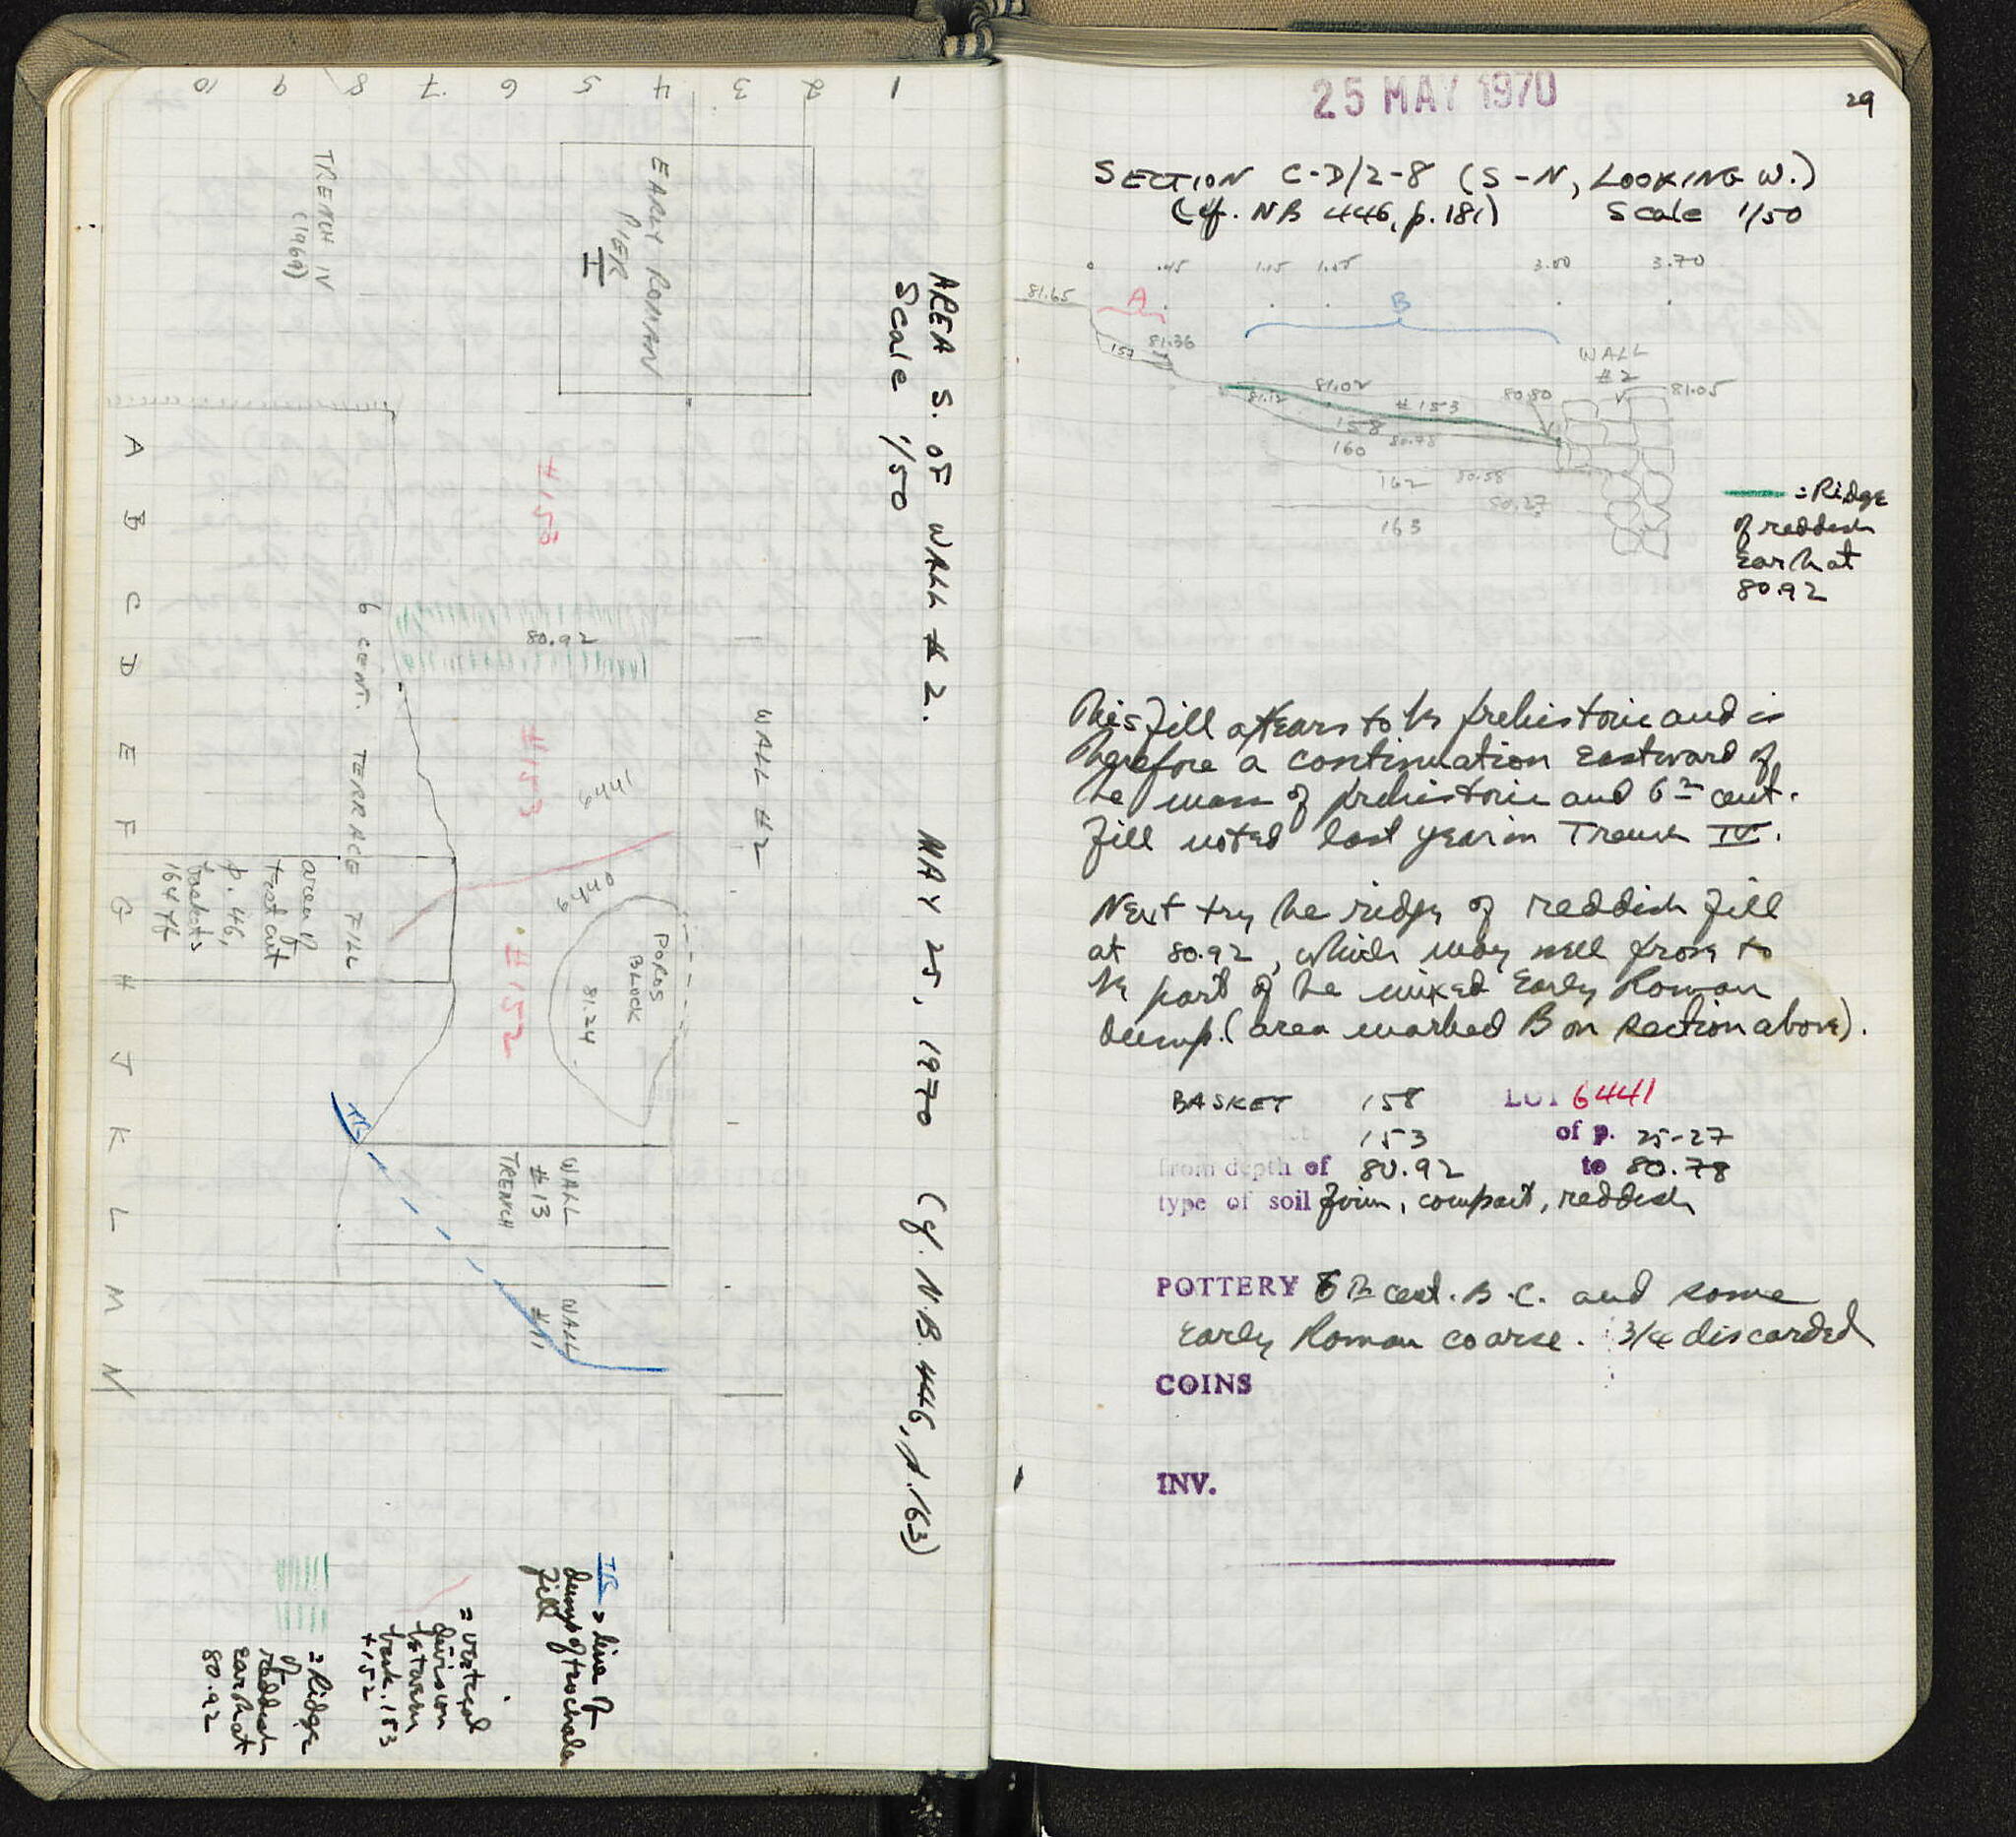 AREA S. OF WALL # 2. MAY 25, 1970 (cf. N.B. 446, p. 163)
Scale 1/50
1 2 3 4 5 6 7 8 9 10
EARLY ROMAN
PIER
I
TRENCH IV
(1969)
A B C D E F G H J K L M N
WALL #2
#153
80.92
#153
6441
6440
#152
POROS
BLOCK
81.24
6 CENT. TERRACE FILL
area of
test cut
p. 46,
baskets
164 ff
TR
WALL
#13
TRENCH
WALL
#11
TR = line of
dump of trochala
fill
= vertical
division
between
bask. 153
+ 152
= Ridge
of
reddish
earth at
80.92
25 MAY 1970
29
SECTION C-D/2-8 (S-N, LOOKING W.)
(cf. NB 446, p. 181) Scale 1/50
0 .45 1.15 3.00 3.70
81.65 A B
157 81.36
WALL
#2
81.12 81.02 #153 80.80 81.05
158 80.78
160
162 80.58
80.27
163
= Ridge
of reddish
earth at
80.92
This fill appears to be prehistoric and is
therefore a continuation eastward of
the mass of prehistoric and 6th cent.
fill noted last year in Trench IV.
Next try the ridge of reddish fill
at 80.92, which may well prove to
be part of the mixed Early Roman
dump. (area marked B on section above).
BASKET 158 LOT 6441
153 of p. 25-27
from depth of 80.92 to 80.78
type of soil firm, compact, reddish
POTTERY 6th cent. B.C. and some
Early Roman coarse. 3/4 discarded
COINS
INV.